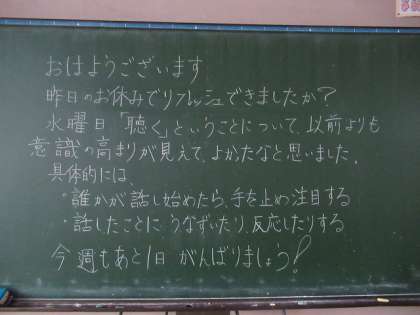 おはようございます
昨日のお休みでリフレッシュできましたか？
水曜日「聴く」ということについて、以前よりも
意識の高まりが見えて、よかったなと思いました。
具体的には、
・誰かが話し始めたら、手を止め注目する
・話したことに、うなずいたり、反応したりする
今週もあと1日 がんばりましょう！